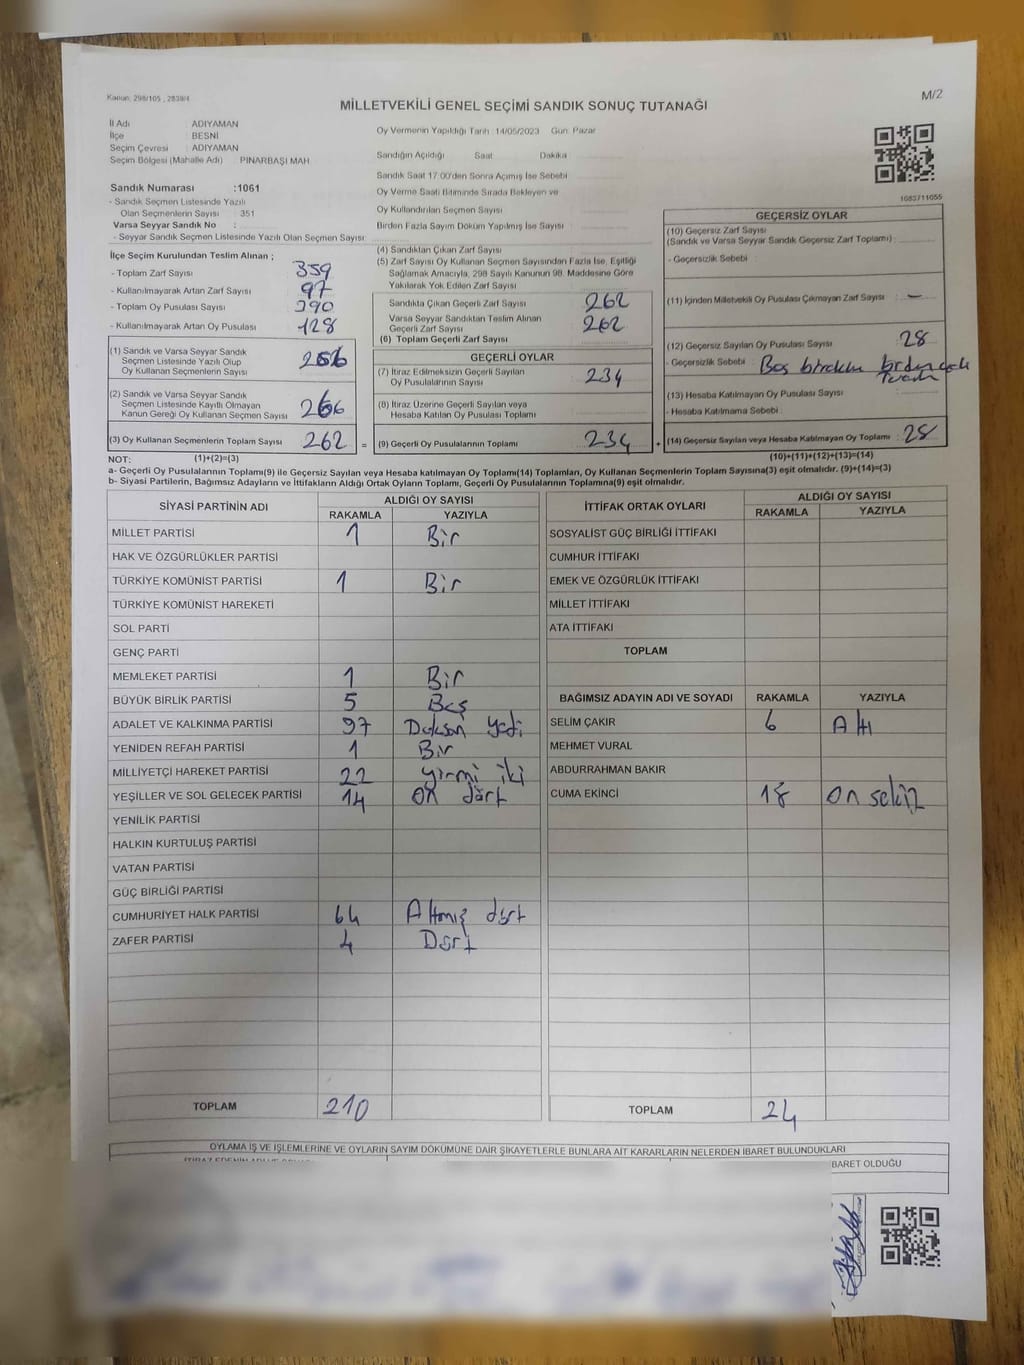 Kanun: 298/105 , 2839/4
M/2
MİLLETVEKİLİ GENEL SEÇİMİ SANDIK SONUÇ TUTANAĞI
İl Adı : ADIYAMAN
İlçe : BESNİ
Seçim Çevresi : ADIYAMAN
Seçim Bölgesi (Mahalle Adı) : PINARBAŞI MAH
Sandık Numarası :1061
- Sandık Seçmen Listesinde Yazılı
Olan Seçmenlerin Sayısı : 351
Varsa Seyyar Sandık No :
- Seyyar Sandık Seçmen Listesinde Yazılı Olan Seçmen Sayısı:
İlçe Seçim Kurulundan Teslim Alınan ;
- Toplam Zarf Sayısı 359
- Kullanılmayarak Artan Zarf Sayısı 97
- Toplam Oy Pusulası Sayısı 390
- Kullanılmayarak Artan Oy Pusulası 128
(1) Sandık ve Varsa Seyyar Sandık
Seçmen Listesinde Yazılı Olup
Oy Kullanan Seçmenlerin Sayısı
(2) Sandık ve Varsa Seyyar Sandık
Seçmen Listesinde Kayıtlı Olmayan
Kanun Gereği Oy Kullanan Seçmen Sayısı
(3) Oy Kullanan Seçmenlerin Toplam Sayısı 262 =
Oy Vermenin Yapıldığı Tarih :14/05/2023 Gün: Pazar
Sandığın Açıldığı Saat Dakika
Sandık Saat 17.00'den Sonra Açılmış İse Sebebi
Oy Verme Saati Bitiminde Sırada Bekleyen ve
Oy Kullandırılan Seçmen Sayısı
Birden Fazla Sayım Döküm Yapılmış İse Sayısı
(4) Sandıktan Çıkan Zarf Sayısı
(5) Zarf Sayısı Oy Kullanan Seçmen Sayısından Fazla İse, Eşitliği
Sağlamak Amacıyla, 298 Sayılı Kanunun 98. Maddesine Göre
Yakılarak Yok Edilen Zarf Sayısı
Sandıkta Çıkan Geçerli Zarf Sayısı 262
Varsa Seyyar Sandıktan Teslim Alınan
Geçerli Zarf Sayısı 262
(6) Toplam Geçerli Zarf Sayısı
GEÇERLİ OYLAR
(7) İtiraz Edilmeksizin Geçerli Sayılan
Oy Pusulalarının Sayısı 234
(8) İtiraz Üzerine Geçerli Sayılan ve
Hesaba Katılan Oy Pusulası Toplamı
(9) Geçerli Oy Pusulalarının Toplamı 234 +
1683711055
GEÇERSİZ OYLAR
(10) Geçersiz Zarf Sayısı
(Sandık ve Varsa Seyyar Sandık Geçersiz Zarf Toplamı) :
- Geçersizlik Sebebi :
(11) İçinden Milletvekili Oy Pusulası Çıkmayan Zarf Sayısı : -
(12) Geçersiz Sayılan Oy Pusulası Sayısı 28
- Geçersizlik Sebebi : Boş
(13) Hesaba Katılmayan Oy Pusulası Sayısı
- Hesaba Katılmama Sebebi :
(14) Geçersiz Sayılan veya Hesaba Katılmayan Oy Toplamı : 28
NOT: (1)+(2)=(3) (10)+(11)+(12)+(13)=(14)
a- Geçerli Oy Pusulalarının Toplamı(9) ile Geçersiz Sayılan veya Hesaba katılmayan Oy Toplamı(14) Toplamları, Oy Kullanan Seçmenlerin Toplam Sayısına(3) eşit olmalıdır. (9)+(14)=(3)
b- Siyasi Partilerin, Bağımsız Adayların ve İttifakların Aldığı Ortak Oyların Toplamı, Geçerli Oy Pusulalarının Toplamına(9) eşit olmalıdır.
SİYASİ PARTİNİN ADI ALDIĞI OY SAYISI
RAKAMLA YAZIYLA
MİLLET PARTİSİ 1 Bir
HAK VE ÖZGÜRLÜKLER PARTİSİ
TÜRKİYE KOMÜNİST PARTİSİ 1 Bir
TÜRKİYE KOMÜNİST HAREKETİ
SOL PARTİ
GENÇ PARTİ
MEMLEKET PARTİSİ 1 Bir
BÜYÜK BİRLİK PARTİSİ 5 Beş
ADALET VE KALKINMA PARTİSİ 97 Doksan yedi
YENİDEN REFAH PARTİSİ 1 Bir
MİLLİYETÇİ HAREKET PARTİSİ 22 yirmi iki
YEŞİLLER VE SOL GELECEK PARTİSİ 14 on dört
YENİLİK PARTİSİ
HALKIN KURTULUŞ PARTİSİ
VATAN PARTİSİ
GÜÇ BİRLİĞİ PARTİSİ
CUMHURİYET HALK PARTİSİ 64 Altmış dört
ZAFER PARTİSİ 4 Dört
TOPLAM 210
İTTİFAK ORTAK OYLARI ALDIĞI OY SAYISI
RAKAMLA YAZIYLA
SOSYALİST GÜÇ BİRLİĞİ İTTİFAKI
CUMHUR İTTİFAKI
EMEK VE ÖZGÜRLÜK İTTİFAKI
MİLLET İTTİFAKI
ATA İTTİFAKI
TOPLAM
BAĞIMSIZ ADAYIN ADI VE SOYADI RAKAMLA YAZIYLA
SELİM ÇAKIR 6 Altı
MEHMET VURAL
ABDURRAHMAN BAKIR
CUMA EKİNCİ 18 on sekiz
TOPLAM 24
OYLAMA İŞ VE İŞLEMLERİNE VE OYLARIN SAYIM DÖKÜMÜNE DAİR ŞİKAYETLERLE BUNLARA AİT KARARLARIN NELERDEN İBARET BULUNDUKLARI
BARET OLDUĞU